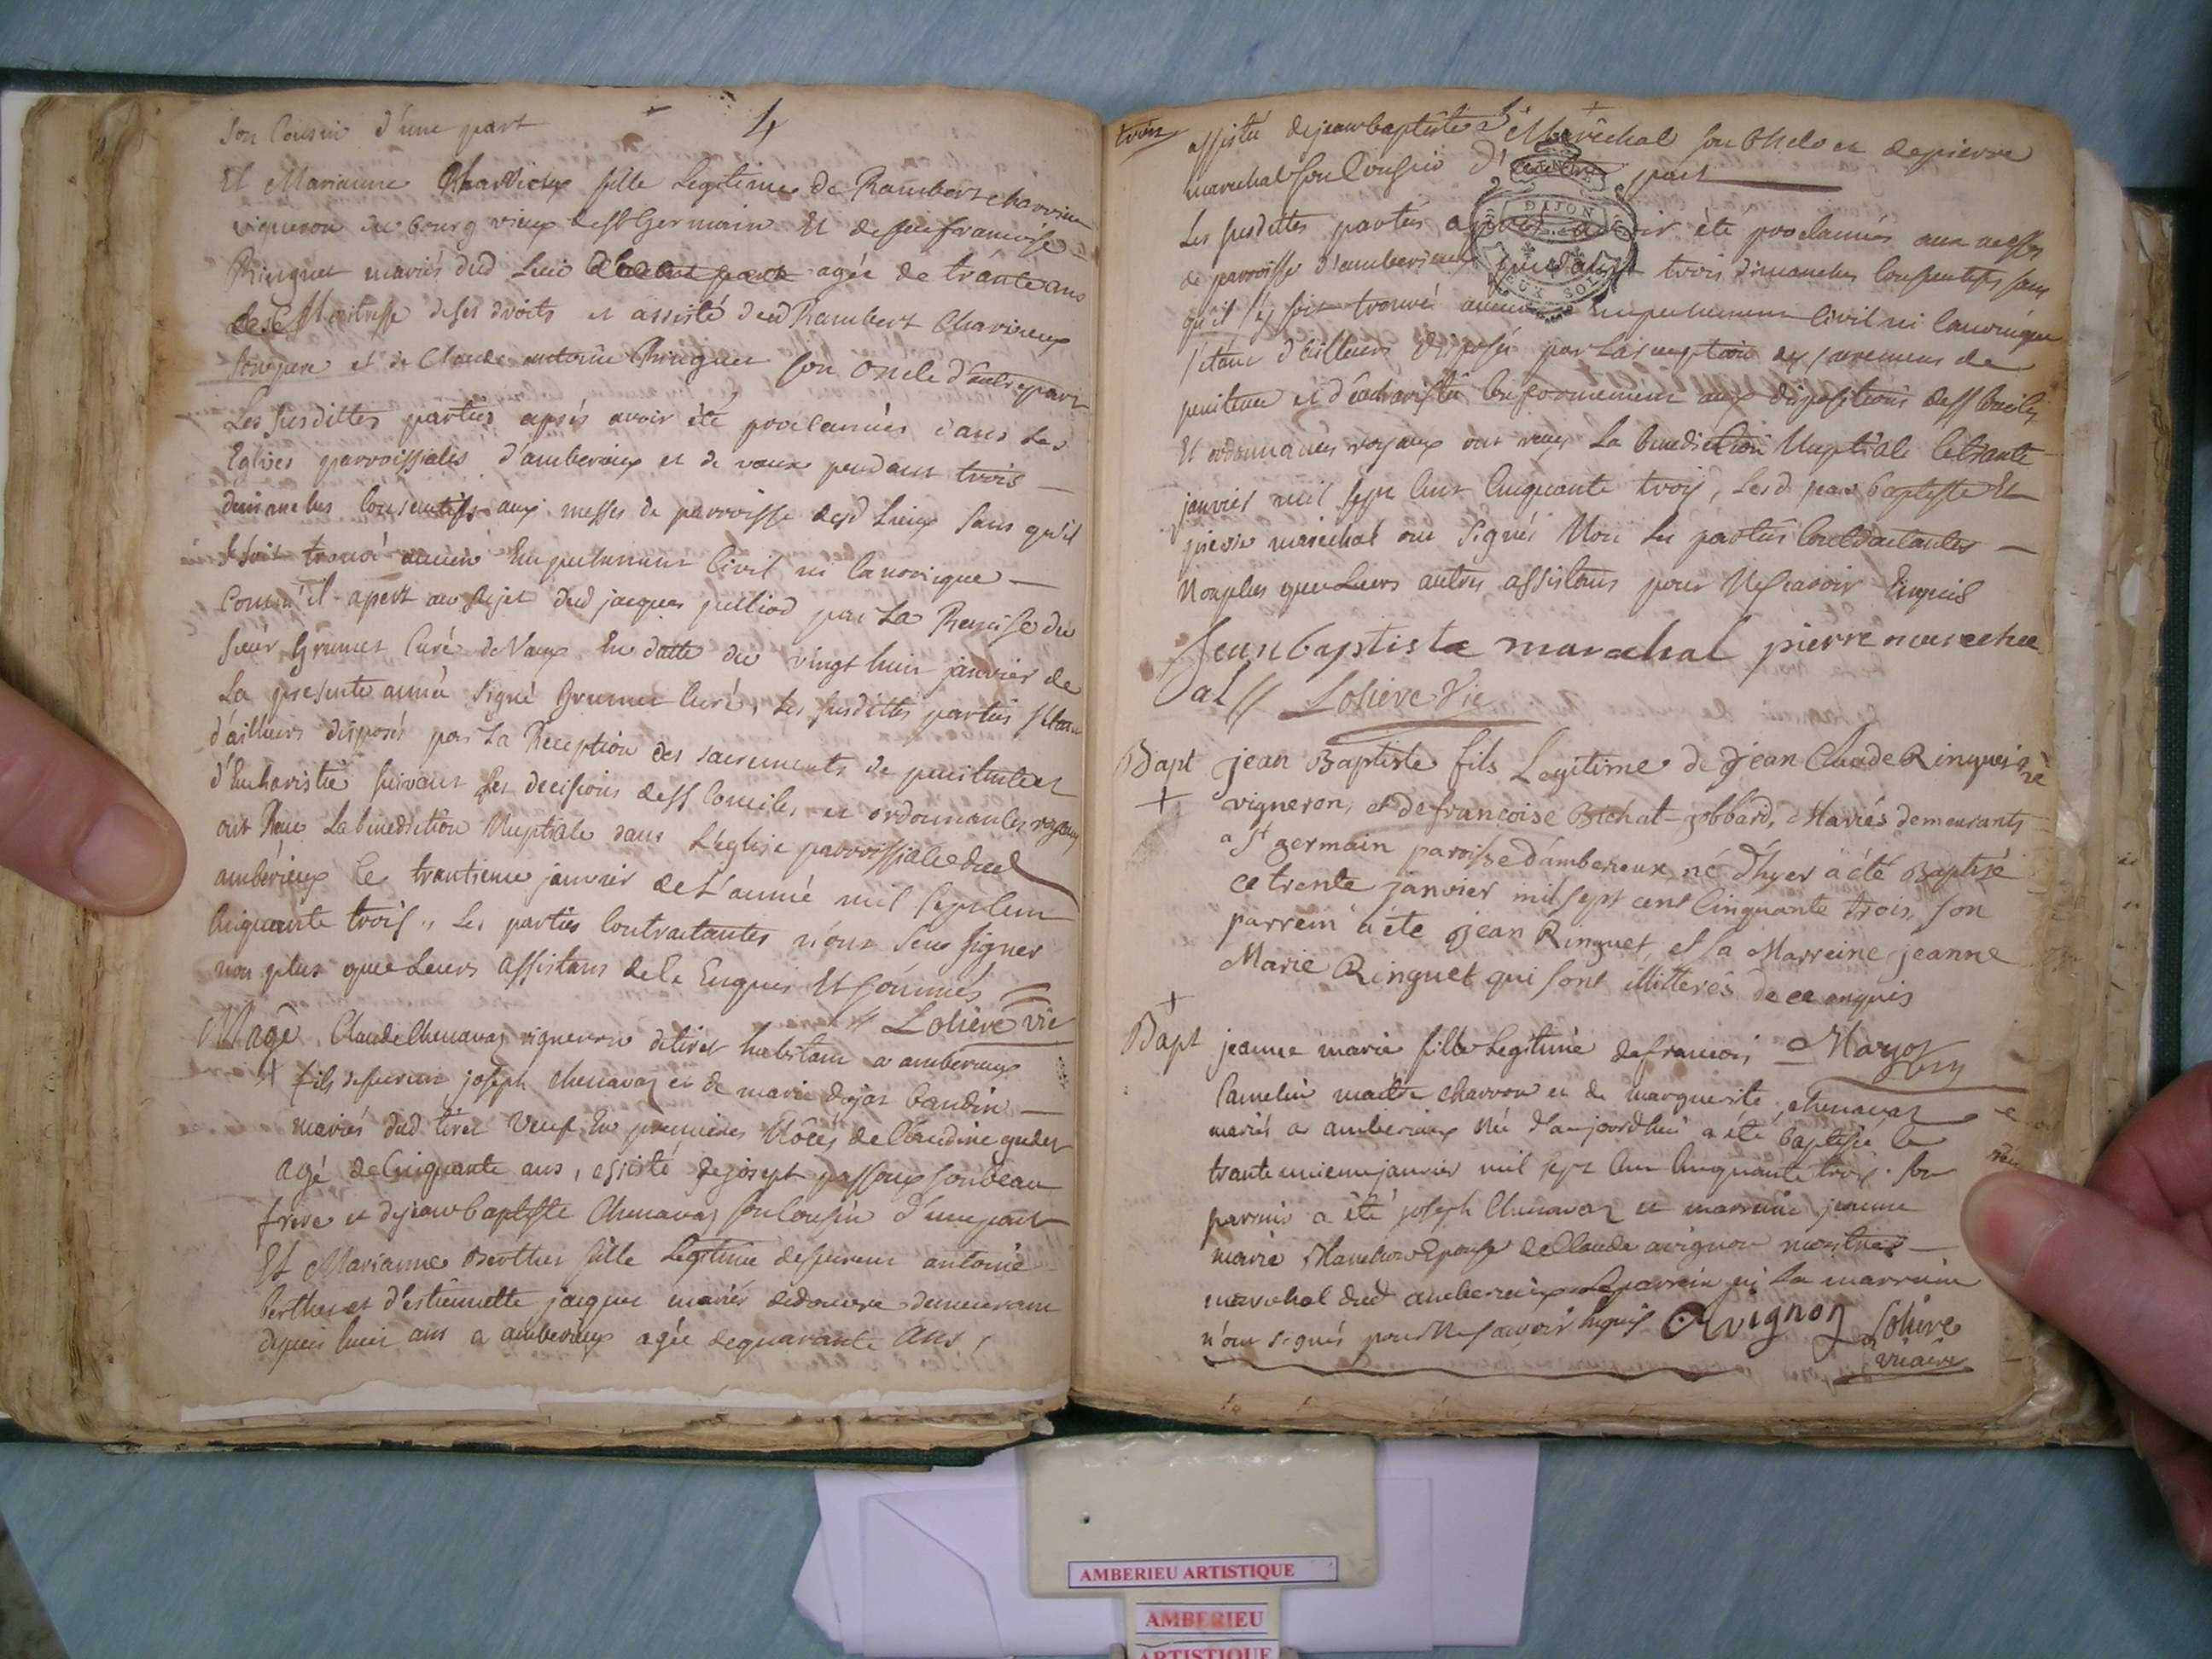 son Cousin d'une part
4
Et Marianne Charvieux fille Legitime de Rambert charvieux
vigneron du bourg vieux de st Germain Et de feue francoise
Ringuet mariés dud Lieu agée de trante ans
Maitresse de ses droits et assisté dud Rambert Charvieux
son pere et de Claude antoine Ringuet son oncle d'autre part
Les susdittes parties aprés avoir été proclamées dans Les
Eglises parroissiales d'amberieux et de vaux pendant trois
dimanches consecutifs aux messes de parroisse desd Lieux sans qu'il
se soit trouvé aucun Empechement Civil ni Canonique
Comm'il apert au sujet dud jacques juilliod par La Remise du
sieur Grumet Curé de Vaux En datte du vingt huit janvier de
La presente année signé Grumet Curé, Les susdittes parties s'étant
d'ailleurs disposés par La Reception des sacrements de penitence et
d'Eucharistie suivant Les decisions des Sts Conciles et ordonnances royaux
ont Reçu La benediction Nuptiale dans L'église parroissiale dud
ambérieux le trantieme janvier de L'année mil sept cent
Cinquante trois, Les parties Contractantes n'ont sçu signer
non plus que Leurs assistans de Ce Enquis Et sommés
Lolieve vic
Mage Claude Chenavaz vigneron de tiret habitant a amberieux
fils de feu joseph chenavaz et de marie dajat baudin
mariés dud tiret Veuf En premieres Nôces de Claudine gudet
Agé de Cinquante ans, assisté de joseph passoux son beau
frere et de jean baptiste Chenavaz son Cousin d'une part
Et Marianne Berthet fille Legitime de feu antoine
berthet et d'estiennette jacquet mariés de douvre demeurant
depuis huit ans a amberieux agée de quarante ans,
trois
assistée de jean baptiste Maréchal son Oncle et de pierre
marechal son Cousin d'autre part
DIJON
Les susdittes parties apres avoir été proclamés aux messes
de parroisse d'amberieux pendant trois dimanches Consecutifs sans
qu'il s'y soit trouvé aucun Empechement Civil ni Canonique
s'étant d'ailleurs disposés par La reception des sacremens de
penitence et d'éucharistie Conformement aux dispositions des Sts Conciles
Et ordonnances royaux ont reçu La benediction Nuptiale le trante
janvier mil sept Cent Cinquante trois, Lesd jean baptiste Et
pierre maréchal ont signés Non les parties Contractantes
Non plus que Leurs autres assistans pour Ne sçavoir Enquis
Jean baptiste marechal pierre marechal
Lolieve Vic
Bapt jean Baptiste fils Legitime de jean Claude Ringuet
vigneron, et de françoise Bichat-gobbard, Mariés demeurants
a St germain paroisse d'amberieux, né d'hyer a été Baptisé
ce trente janvier mil sept cent Cinquante trois, son
parrein a été jean Ringuet, et sa Marreine jeanne
Marie Ringuet qui sont illitterés de ce enquis
Bapt jeanne marie fille Legitime de francois
Camelin maitre charron et de marguerite chenavaz
mariés a amberieux Né d'aujourdhui a été baptisée le
trante unieme janvier mil sept Cent Cinquante trois. son
parrain a été joseph Chenavaz et marraine jeanne
marie Epouse de Claude avignon
marechal dud amberieux Le parrain ni La marraine
n'ont signés pour Ne sçavoir Enquis Avignon Lolieve
vicaire
AMBERIEU ARTISTIQUE
AMBERIEU
ARTISTIQUE